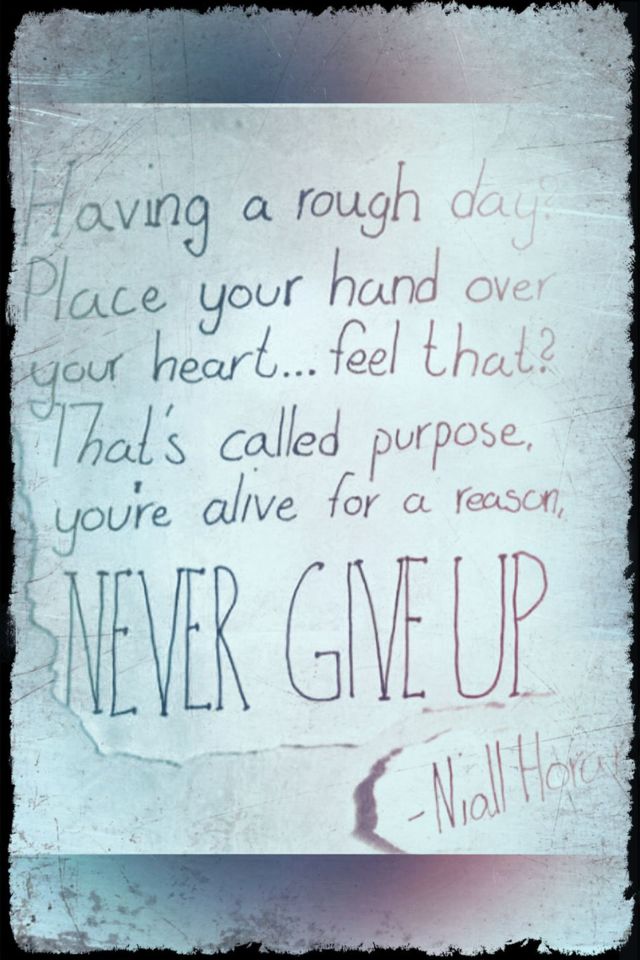 Having a rough day?
Place your hand over
your heart... feel that?
That's called purpose,
you're alive for a reason,
NEVER GIVE UP
-Niall Horan